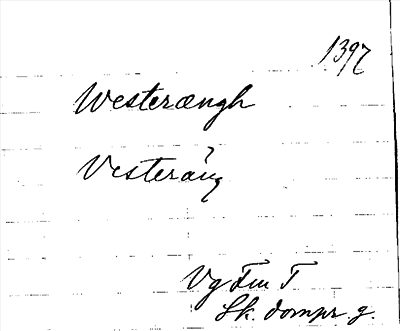 1397
Westerængh
Vesteräng
Vg Fm T
Sk. dompr. g.